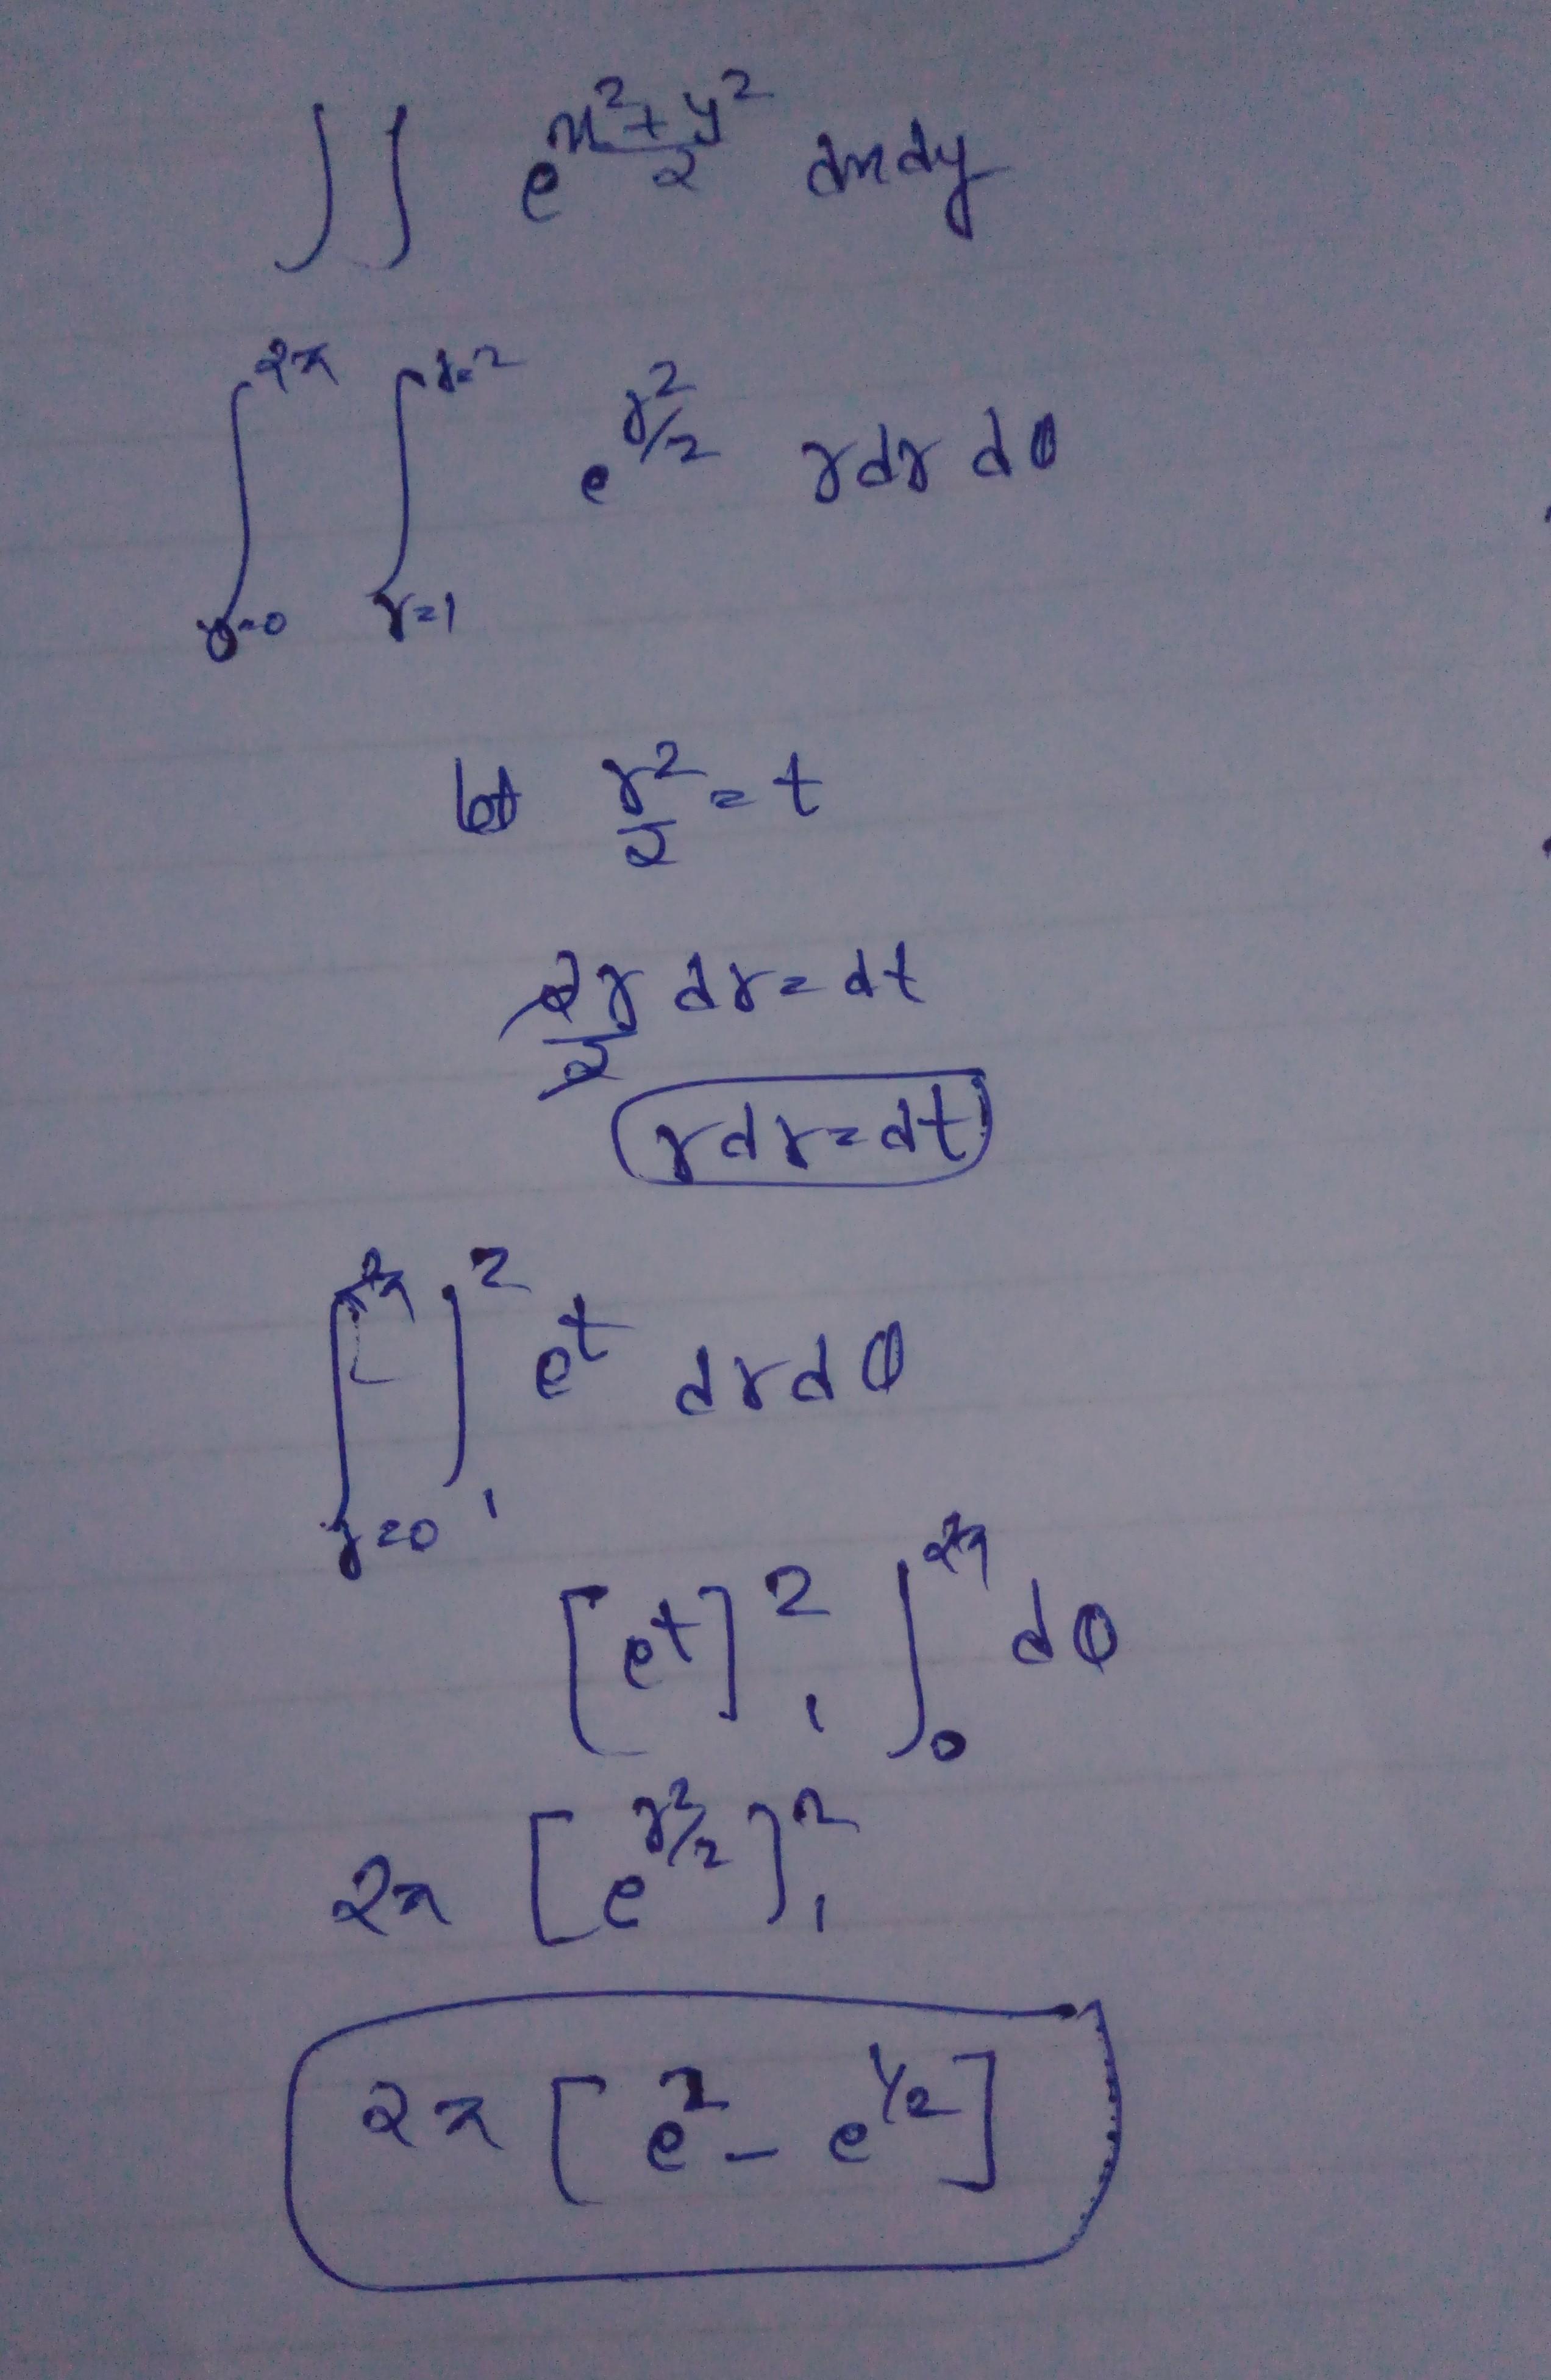 ∫∫ e^((x²+y²)/2) dxdy
∫_{θ=0}^{2π} ∫_{r=1}^{r=2} e^(r²/2) r dr dθ
let r²/2 = t
2r/2 dr = dt
r dr = dt
∫_{r=0}^{2π} ∫_1^2 e^t dr dθ
[e^t]_1^2 ∫_0^{2π} dθ
2π [e^(r²/2)]_1^2
2π [e² - e^(1/2)]